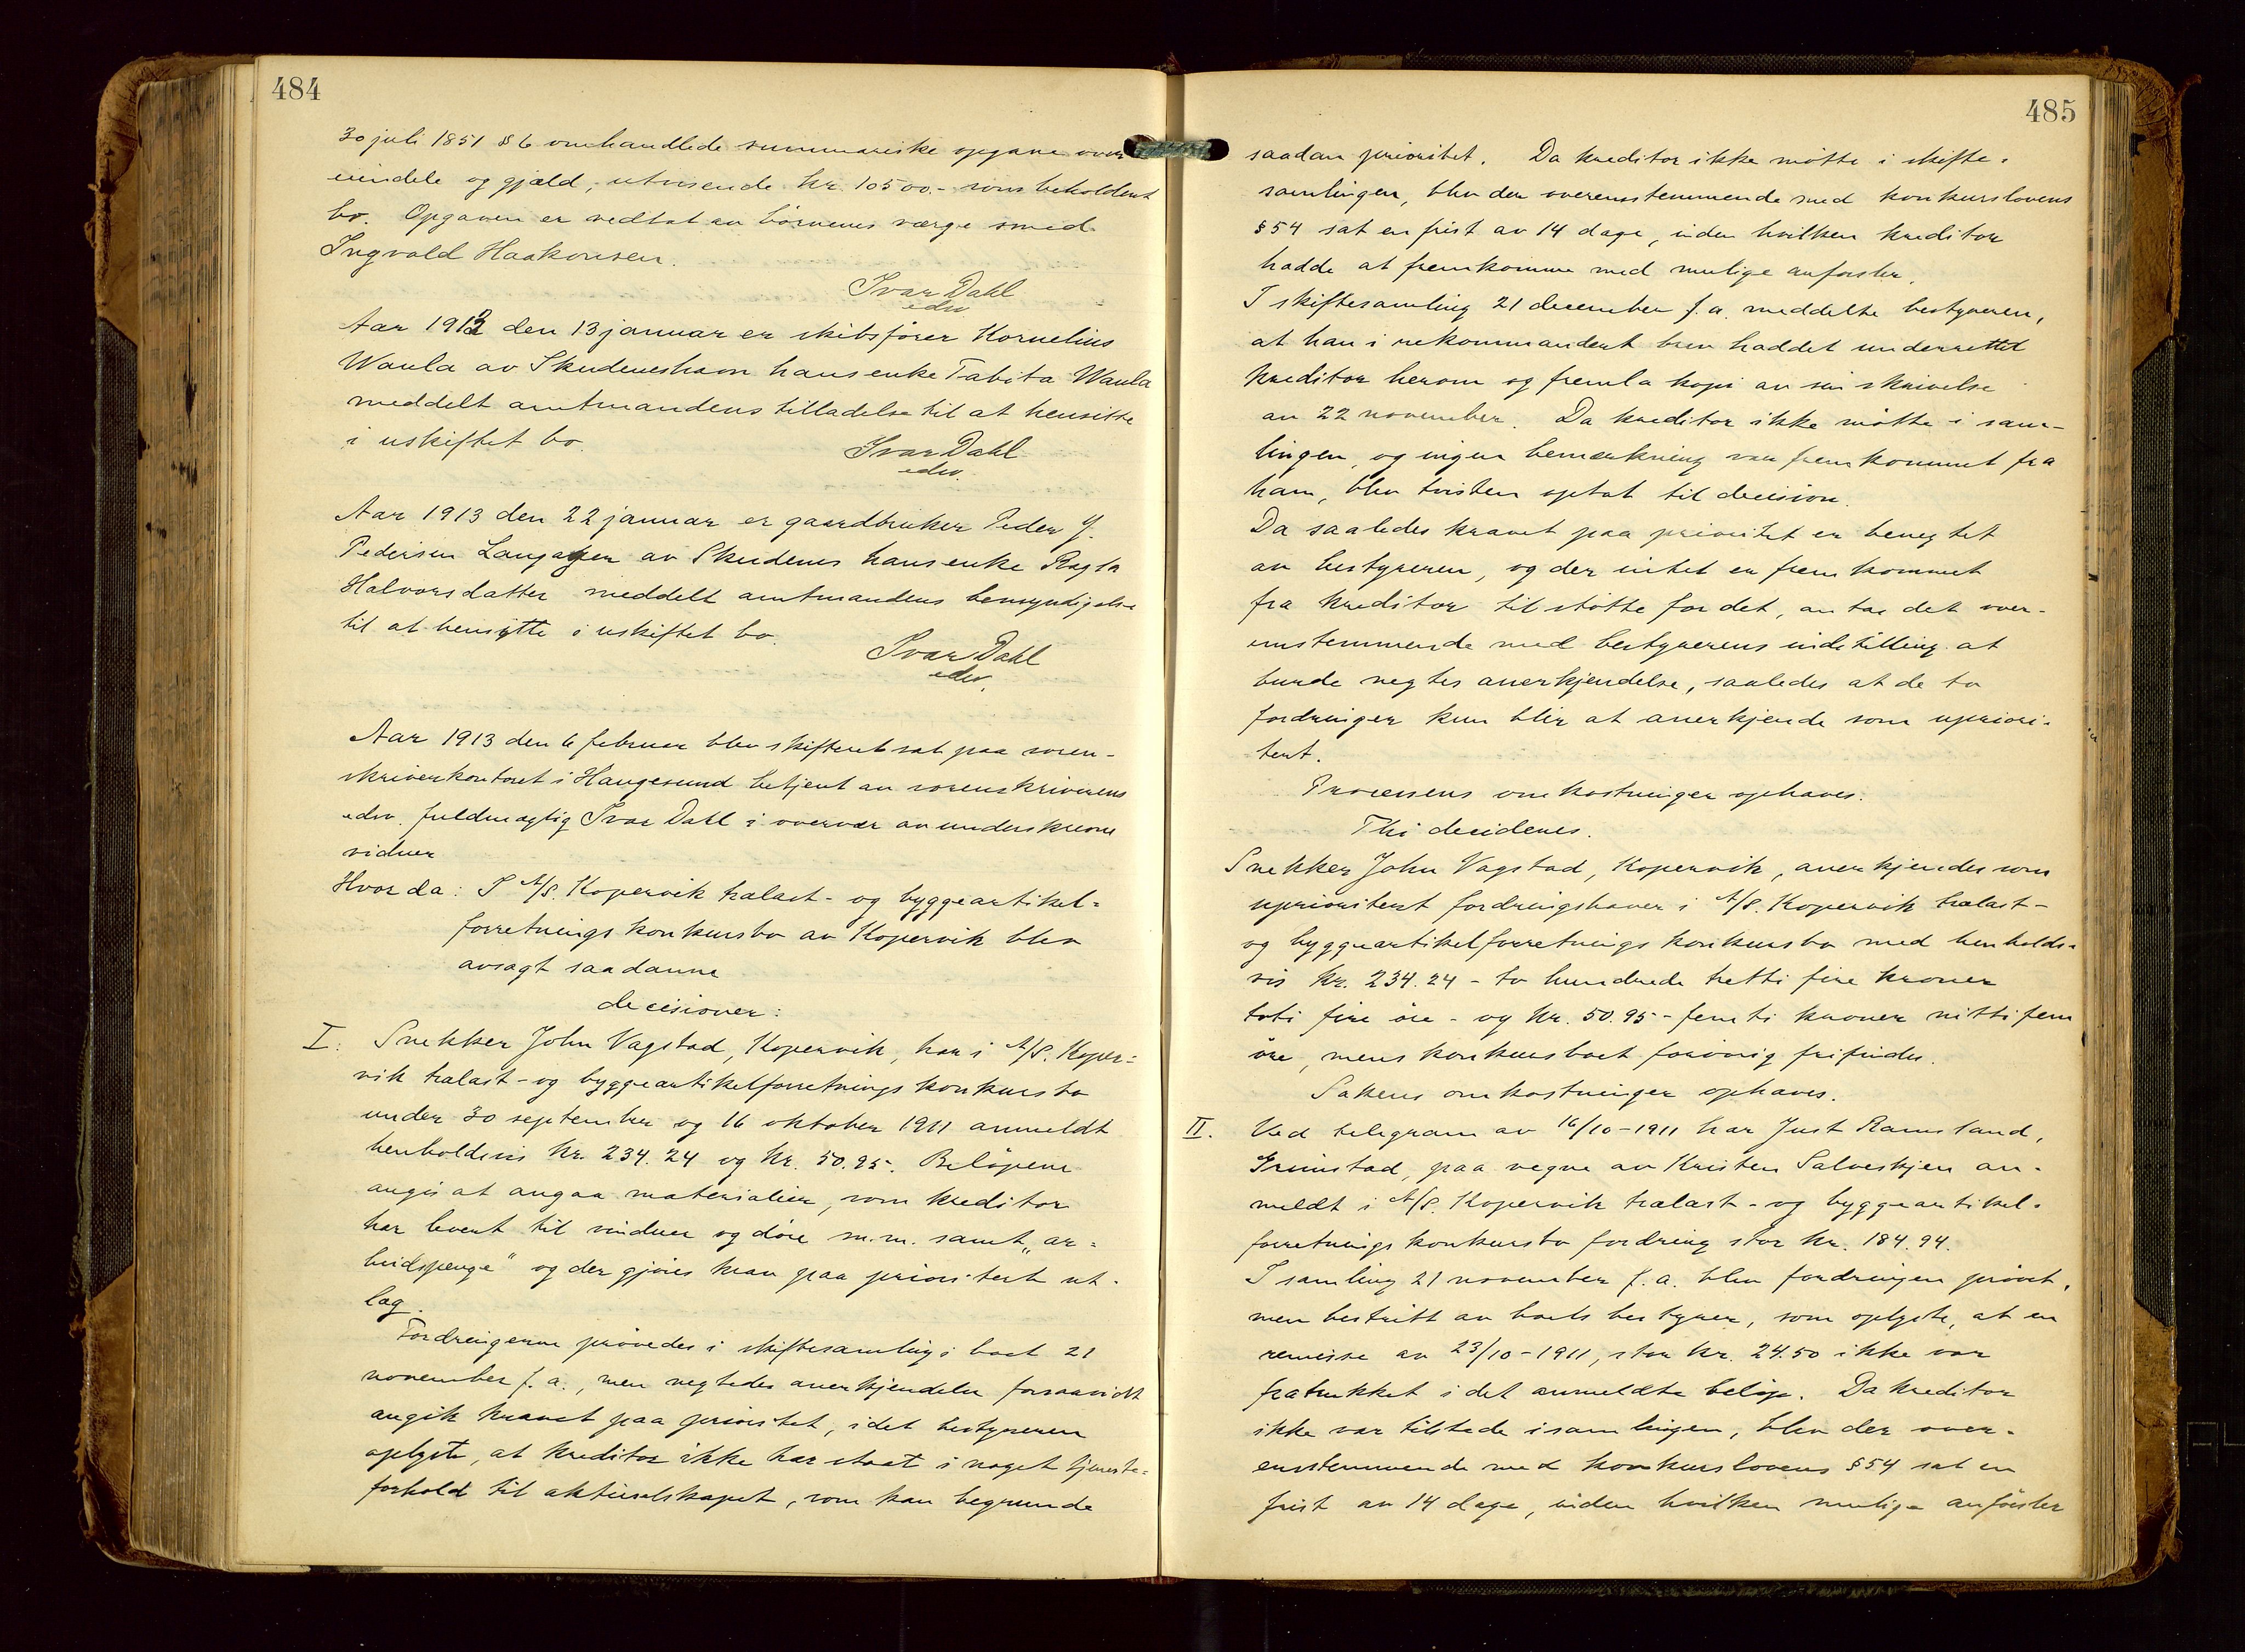 484
30 juli 1851 § 6 omhandlede summariske opgave over
eiendele og gjæld, utvisende kr. 10500.- som beholdent
bo. Opgaven er vedtat av börnenes værge smed
Ingvald Haakonsen.
Ivar Dahl
edsv
Aar 1913 den 13 januar er skibsförer Kornelius
Waula av Skudeneshavn hans enke Tabita Waula
meddelt amtmandens tilladelse til at hensitte
i uskiftet bo.
Ivar Dahl
edsv.
Aar 1913 den 22 januar er gaardbruker Peder J.
Pedersen Langaker av Skudenes hans enke Ragla
Halvorsdatter meddelt amtmandens bemyndigelse
til at hensitte i uskiftet bo.
Ivar Dahl
edsv.
Aar 1913 den 6 februar blev skifteret sat paa soren-
skriverkontoret i Haugesund betjent av sorenskriverens
edsv. fuldmægtig Ivar Dahl i overvær av underskrevne
vidner
Hvor da: I A/S. Kopervik trælast- og byggeartikel-
forretnings konkursbo av Kopervik blev
avsagt saadanne
decisioner:
I. Snekker John Vagstad, Kopervik, har i A/S. Koper-
vik trælast- og byggeartikelforretnings konkursbo
under 30 september og 16 oktober 1911 anmeldt
henholdsvis kr. 234.24 og kr. 50.95. Belöpene
angis at angaa materialier, som kreditor
har levert til vinduer og döre m.m. samt „ar-
beidspenge" og der gjöres krav paa prioritert ut-
læg.
Fordringerne prövedes i skiftesamling i boet 21
november f. a., men negtedes anerkjendelse forsaavidt
angik kravet paa prioritet, idet bestyreren
oplyste, at kreditor ikke har staat i noget tjeneste-
forhold til aktieselskapet, som kan begrunde
485
saadan prioritet. Da kreditor ikke mötte i skifte-
samlingen, blev der overensstemmende med konkurslovens
§ 54 sat en frist av 14 dage, inden hvilken kreditor
hadde at fremkomme med mulige anförsler.
I skiftesamling 21 december f. a. meddelte bestyreren,
at han i rekommandert brev haddet underrettet
kreditor herom og fremla kopi av sin skrivelse
av 22 november. Da kreditor ikke mötte i sam-
lingen, og ingen bemerkning var fremkommet fra
ham, blev tvisten optat til decision.
Da saaledes kravet paa prioritet er benegtet
av bestyreren, og der intet er fremkommet
fra kreditor til stötte for det, antas det over-
ensstemmende med bestyrerens indstilling at
burde negtes anerkjendelse, saaledes at de to
fordringer kun blir at anerkjende som upriori-
tert.
Processens omkostninger ophæves.
Thi decideres.
Snekker John Vagstad, Kopervik, anerkjendes som
uprioritert fordringshaver i A/S. Kopervik trælast-
og byggeartikelforretnings konkursbo med henholds-
vis kr. 234.24 - to hundrede tretti fire kroner
toti fire öre - og kr. 50.95 - femti kroner nitti fem
öre, mens konkursboet forövrig frifindes.
Sakens omkostninger ophæves.
II. Ved telegram av 16/10-1911 har Just Ramsland,
Grimstad, paa vegne av Kristen Salveskjen an-
meldt i A/S. Kopervik trælast- og byggeartikel-
forretnings konkursbo fordring stor kr. 184.94.
I samling 21 november f. a. blev fordringen prövet,
men bestritt av boets bestyrer, som oplyste, at en
remisse av 23/10-1911, stor kr. 24.50 ikke var
fratrukket i det anmeldte belöp. Da kreditor
ikke var tilstede i samlingen, blev der over-
ensstemmende med konkurslovens § 54 sat en
frist av 14 dage, inden hvilken mulige anförsler